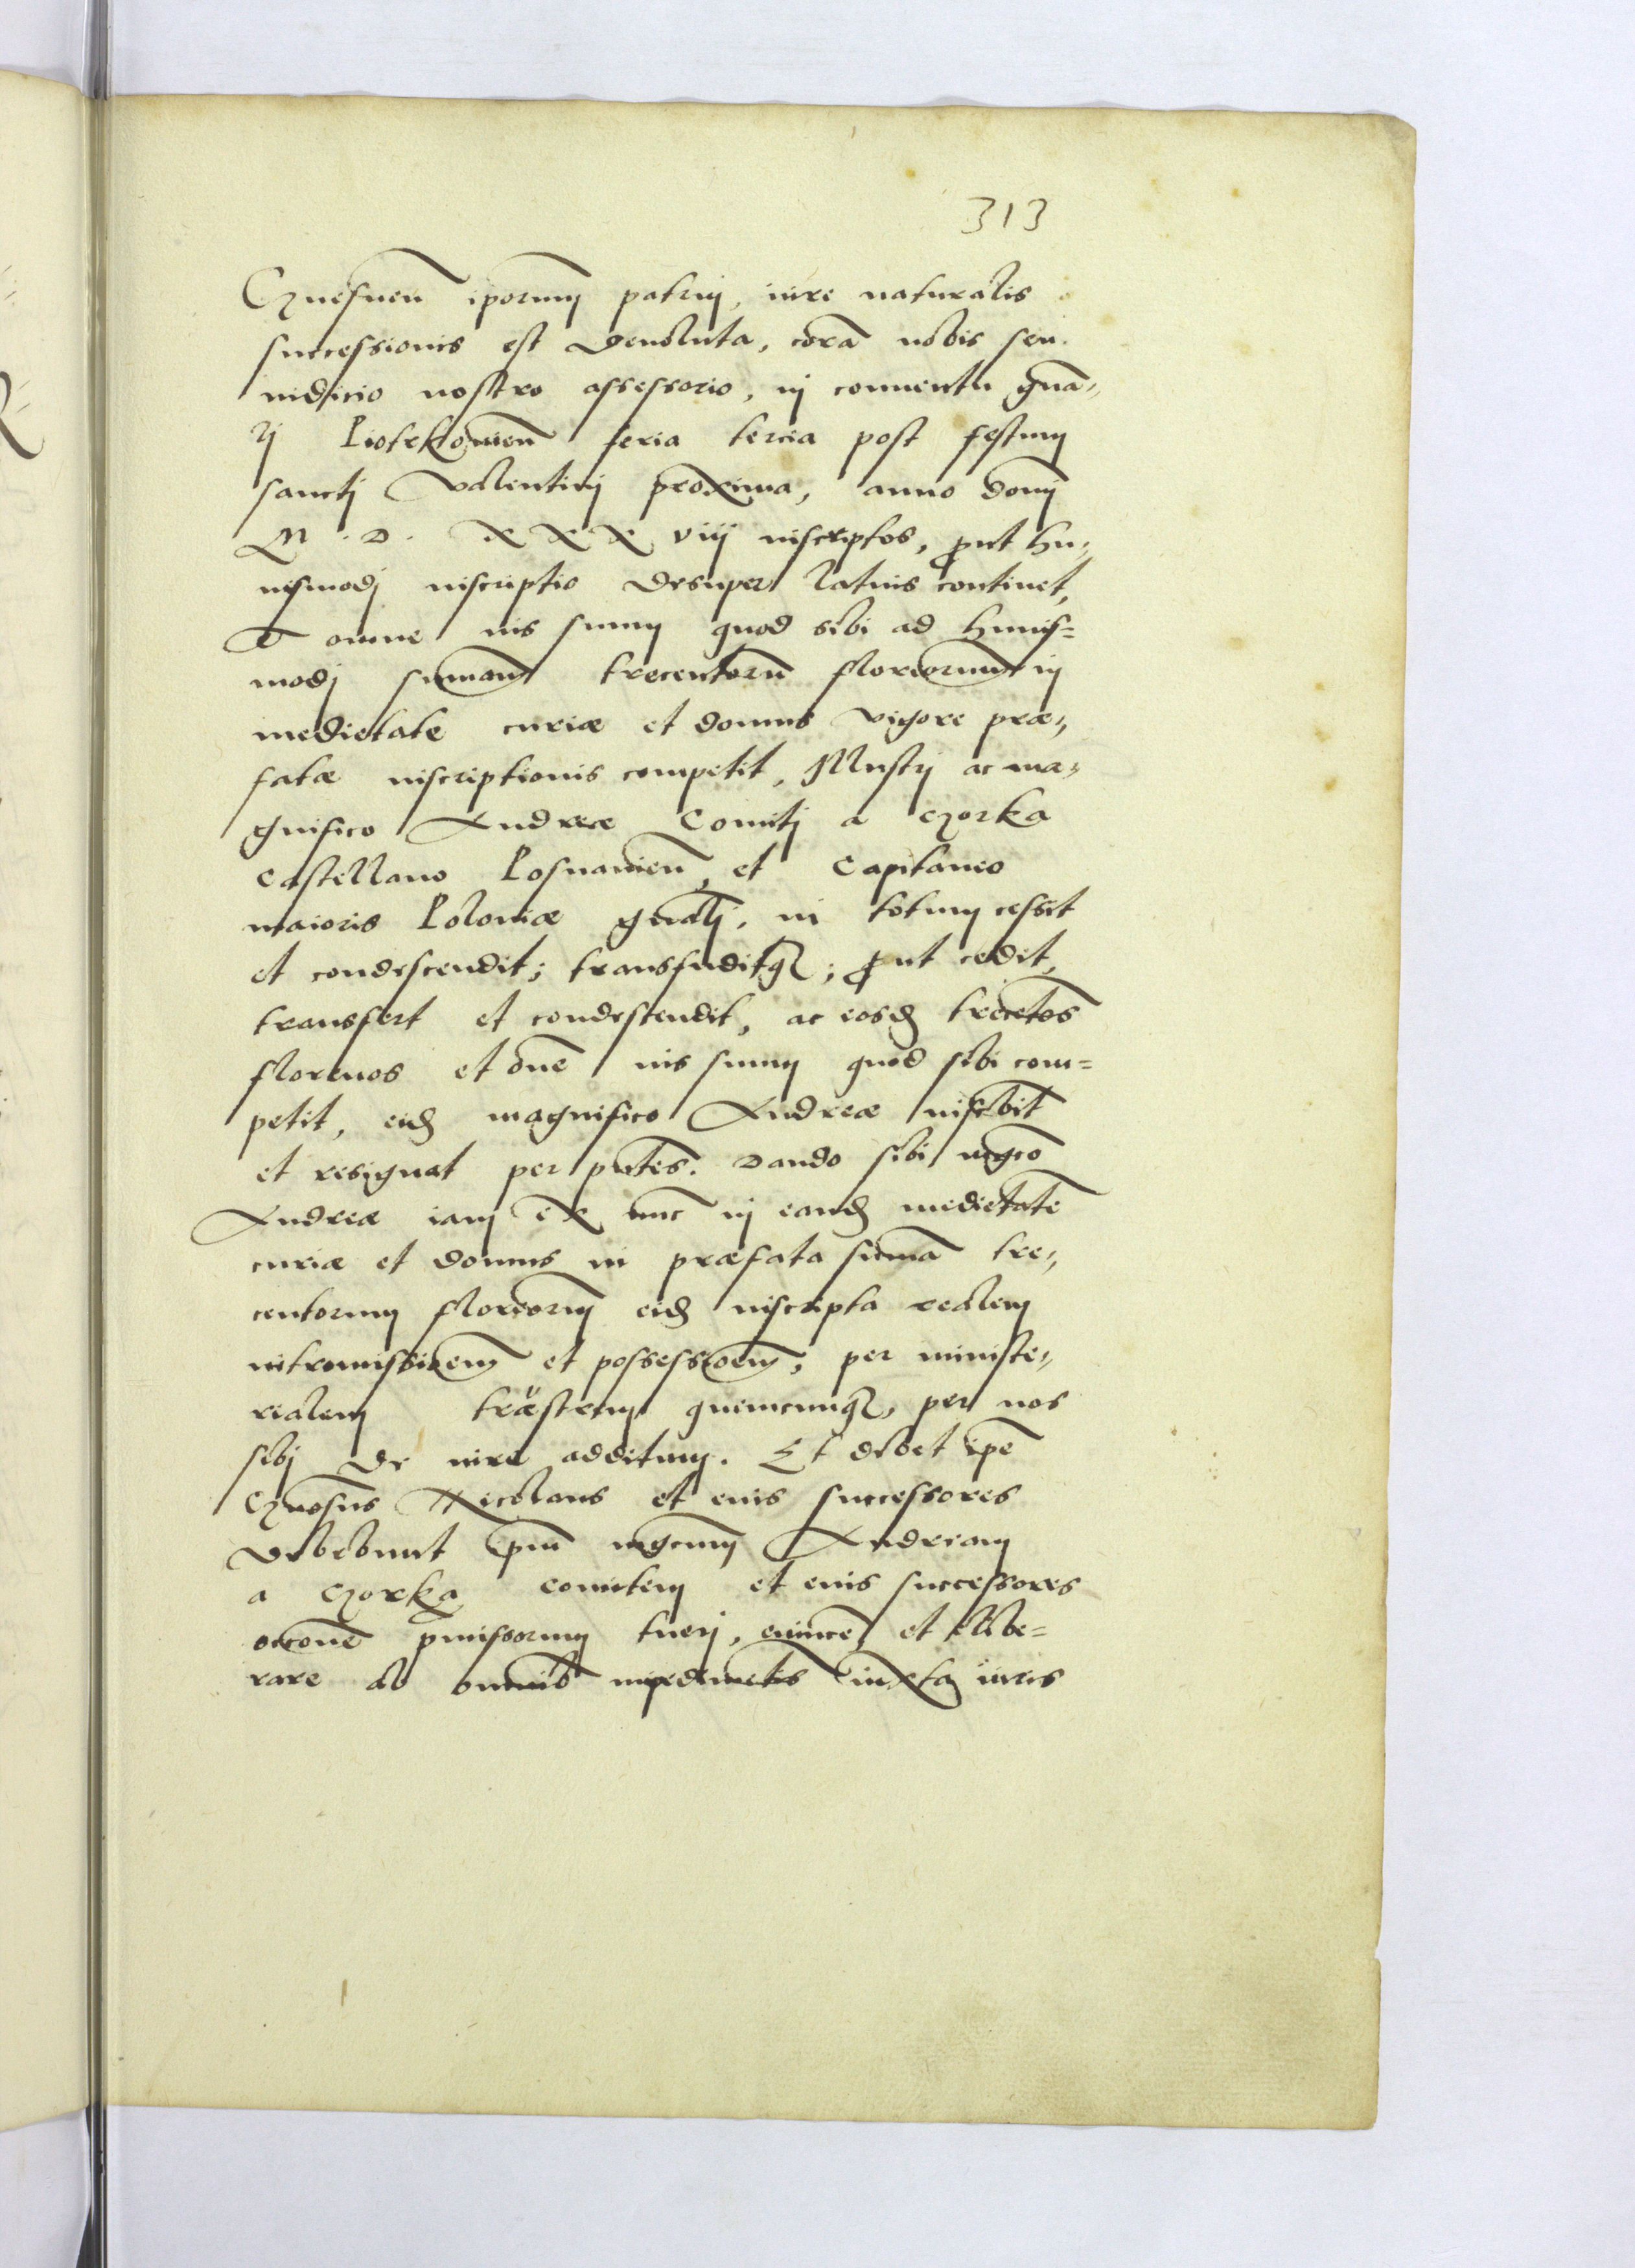 313
Gnesnen̄ ip̄orum patrui, iure naturalis
successionis est devoluta, corā nobis seu
iudicio nostro assessorio, in conuentu gn̄a„
li Piotrkouien̄ feria tercia post festum
sancti Valentini proxima, anno domī
M . D . XXX viij inscriptos, ꝓut hu„
iusmodi inscriptio desuper latius continet,
Et omne ius suum quod sibi ad huius=
modi sum̄am trecentorū floreorum̄ in
medietate curiæ et domus vigore præ„
fatæ inscriptionis competit, Illustri ac ma„
gnifico Andreæ Comiti a Gorka
Castellano Posnanien̄, et Capitaneo
maioris Poloniæ gn̄ali, in totum cessit
et condescendit; transfuditqꝫ; ꝓut cedit,
transfert et condescendit, ac eosdꝫ trecētos
florenos et om̄e ius suum quod sibi com=
petit, eidꝫ magnifico Andreæ inscribit
et resignat per pn̄tes. Dando sibi mgco̅
Andreæ iam ex nunc in eandꝫ medietatē
curiæ et domus in præfata sum̄a tre„
centorum floreorum̄ eidꝫ inscripta realem
intromissioem̄ et possessioem̄, per ministe„
rialem trr̄estrem quemcunqꝫ, per nos
sibi de iure additum. Et debet ip̄e
Gn̄osus Nicolaus et eius successores
debebunt ip̄um mgcum̄ Andream
a Gorka comitem et eius successores
occoe̅ p̄missorum tueri, euince̅ et libe=
rare ab omnib impedimētis iuxta iuris